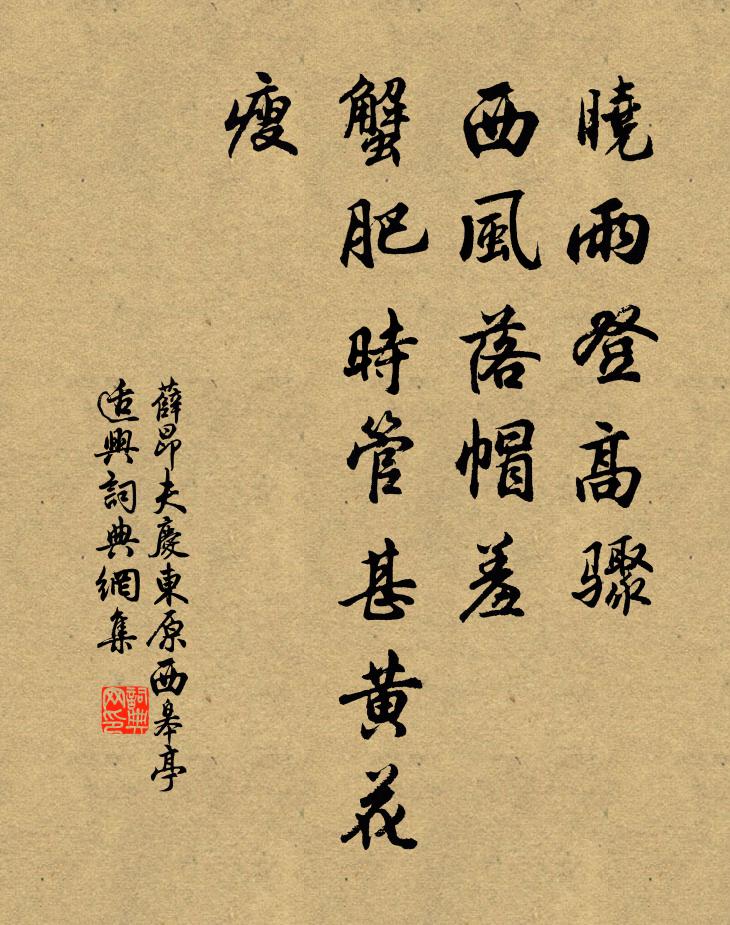 曉雨登高驟
西風落帽羞
蟹肥時管甚黃花
瘦
薛昂夫慶東原西皋亭
适興詞典網集
詞典网印